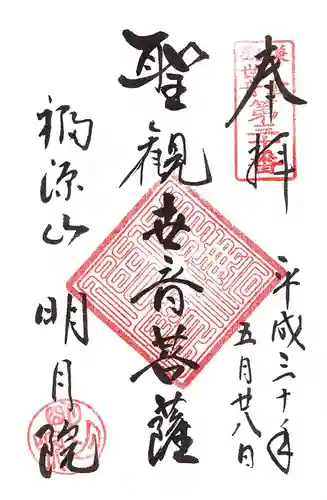 奉拝
平成三十年
五月廿八日
聖観世音菩薩
福源山
明月院